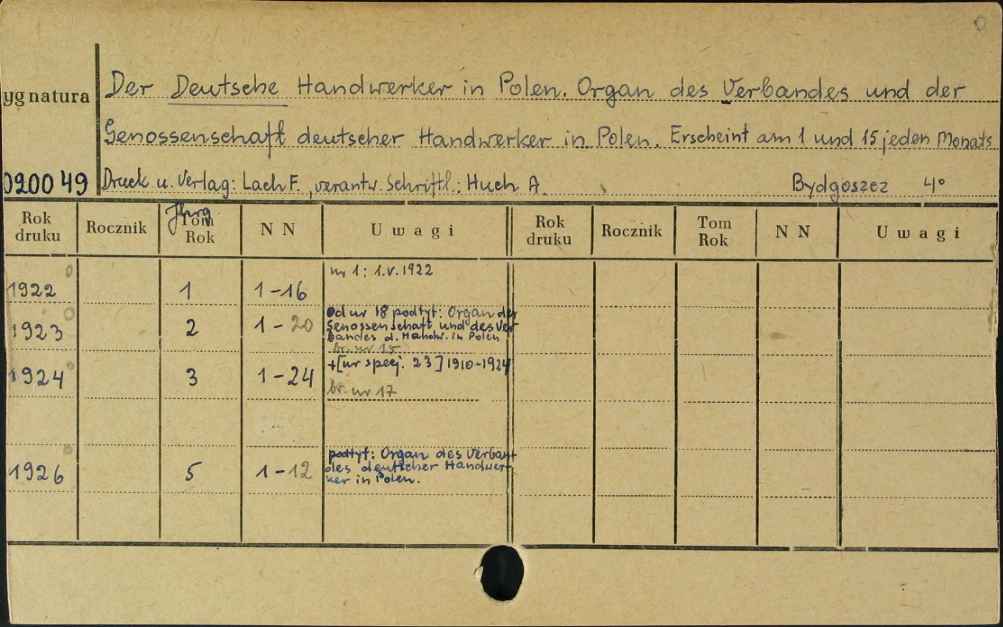 ygnatura
Der Deutsche Handwerker in Polen. Organ des Verbandes und der
Genossenschaft deutscher Handwerker in Polen. Erscheint am 1 und 15 jeden Monats
020049 Druck u. Verlag: Lach F., verantw. Schriftl.: Huch A. Bydgoszcz 4°
Rok druku Rocznik Jhrg Tom Rok NN Uwagi Rok druku Rocznik Tom Rok NN Uwagi
nr 1: 1.V.1922
1922 1 1-16
Od nr 18 podtyt: Organ der
Genossenschaft und des Ver
1923 2 1-20
bandes d. Handw. in Polen
br. nr 15
+[nr spec. 23] 1910-1924
1924 3 1-24
br. nr 17
podtyt: Organ des Verban
des deutscher Handwer
1926 5 1-12
ker in Polen.